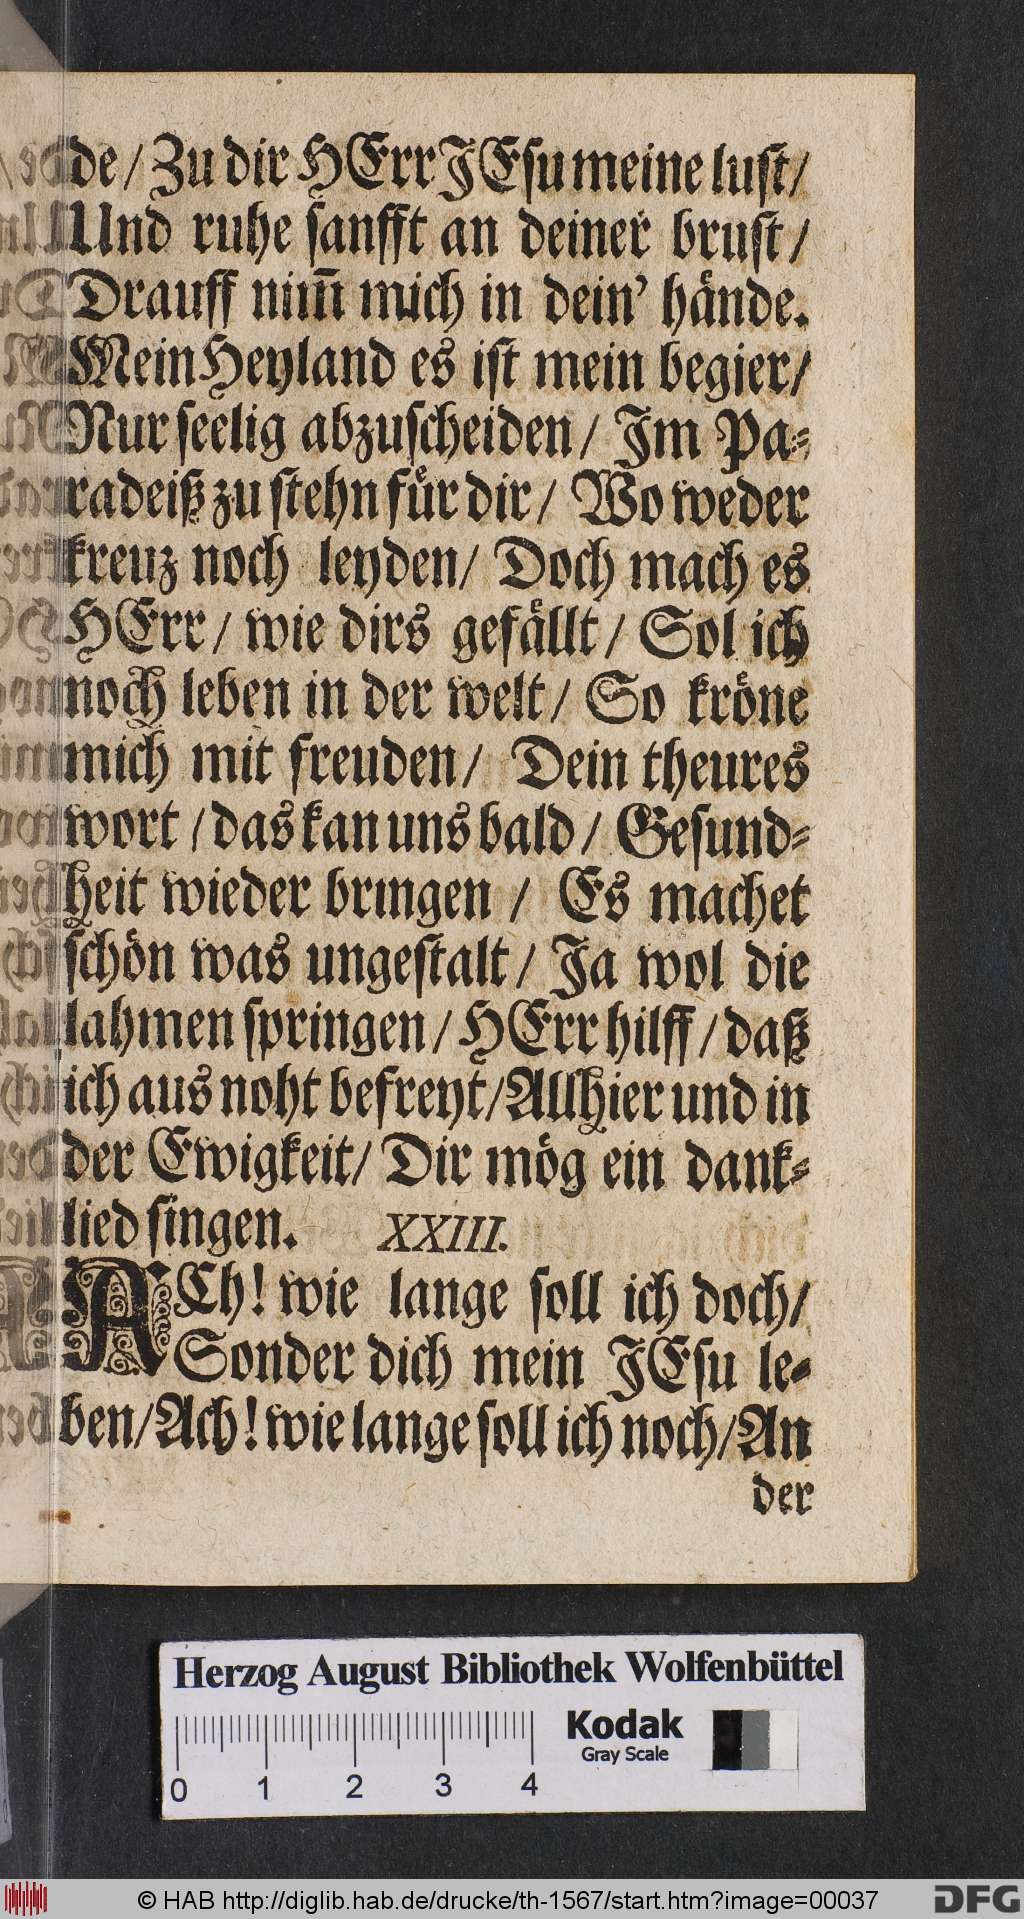 de / Zu dir HErr JEsu meine lust /
Und ruhe sanfft an deiner brust /
Drauff nim̄ mich in dein' hände.
Mein Heyland es ist mein begier /
Nur seelig abzuscheiden / Im Pa-
radeiß zu stehn für dir / Wo weder
kreuz noch leyden / Doch mach es
HErr / wie dirs gefällt / Sol ich
noch leben in der welt / So kröne
mich mit freuden / Dein theures
wort / das kan uns bald / Gesund-
heit wieder bringen / Es machet
schön was ungestalt / Ja wol die
lahmen springen / HErr hilff / daß
ich aus noht befreyt / Allhier und in
der Ewigkeit / Dir mög ein dank-
lied singen. XXIII.
ACh! wie lange soll ich doch /
Sonder dich mein JEsu le-
ben / Ach! wie lange soll ich noch / An
der
Herzog August Bibliothek Wolfenbüttel
Kodak
Gray Scale
0 1 2 3 4
© HAB http://diglib.hab.de/drucke/th-1567/start.htm?image=00037
DFG